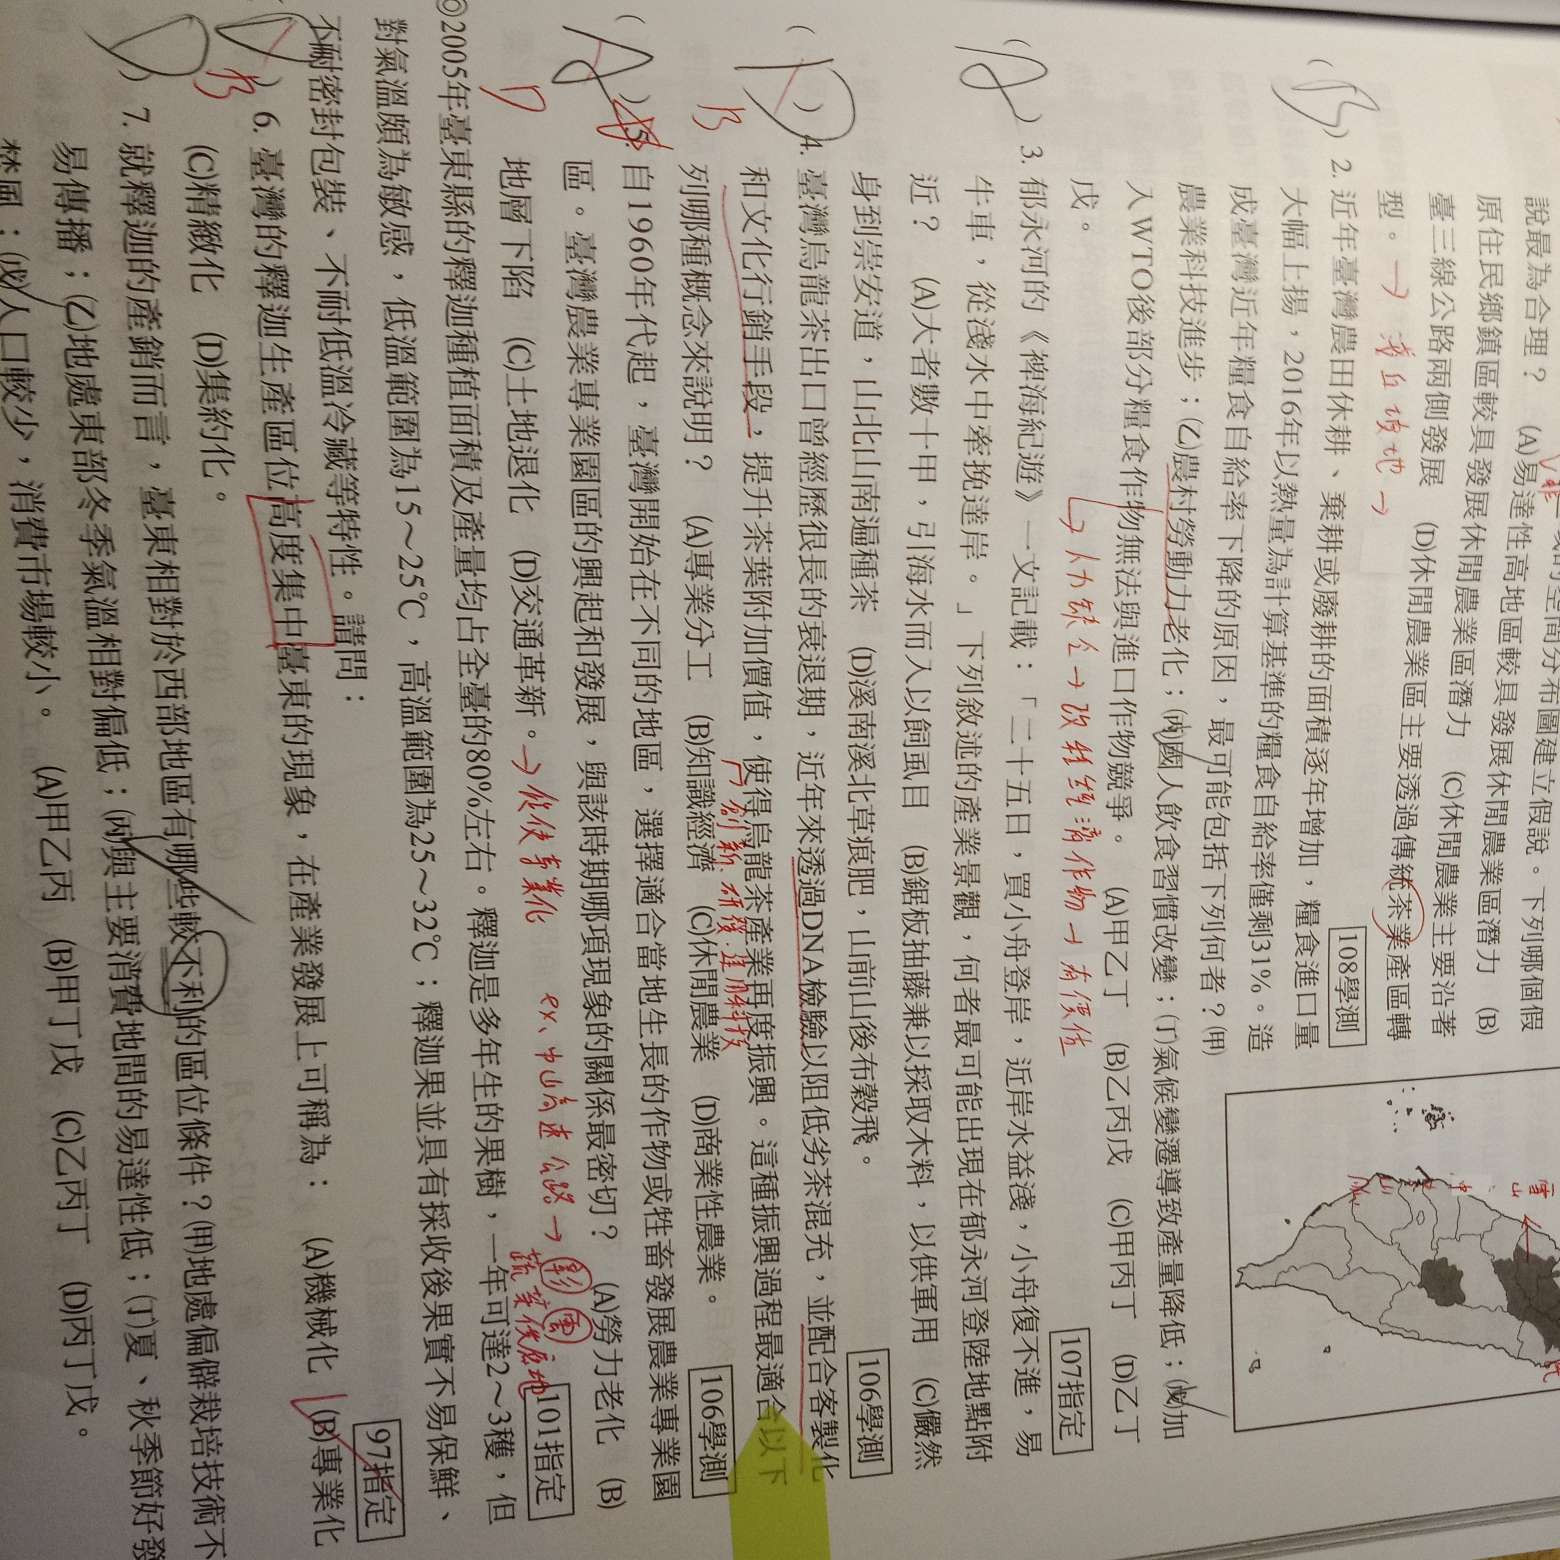 說最為合理？ (A)易達性高地區較具發展休閒農業區潛力 (B)
原住民鄉鎮區較具發展休閒農業區潛力 (C)休閒農業主要沿著
臺三線公路兩側發展 (D)休閒農業區主要透過傳統茶業產區轉
型。
108學測
(B) 2. 近年臺灣農田休耕、棄耕或廢耕的面積逐年增加，糧食進口量
大幅上揚，2016年以熱量為計算基準的糧食自給率僅剩31%。造
成臺灣近年糧食自給率下降的原因，最可能包括下列何者？(甲)
農業科技進步；(乙)農村勞動力老化；(丙)國人飲食習慣改變；(丁)氣候變遷導致產量降低；(戊)加
入WTO後部分糧食作物無法與進口作物競爭。 (A)甲乙丁 (B)乙丙戊 (C)甲丙丁 (D)乙丁
戊。
→人力缺乏→改種經濟作物→有價值
107指定
3. 郁永河的《裨海紀遊》一文記載：「二十五日，買小舟登岸，近岸水益淺，小舟復不進，易
牛車，從淺水中牽挽達岸。」下列敘述的產業景觀，何者最可能出現在郁永河登陸地點附
近？ (A)大者數十甲，引海水而入以飼虱目 (B)鋸板抽藤兼以採取木料，以供軍用 (C)儼然
身到崇安道，山北山南遍種茶 (D)溪南溪北草痕肥，山前山後布穀飛。
106學測
(D) 4. 臺灣烏龍茶出口曾經歷很長的衰退期，近年來透過DNA檢驗以阻低劣茶混充，並配合客製化
B
和文化行銷手段，提升茶葉附加價值，使得烏龍茶產業再度振興。這種振興過程最適合以下
創新、研發
列哪種概念來說明？ (A)專業分工 (B)知識經濟 (C)休閒農業 (D)商業性農業。
106學測
(A) 5. 自1960年代起，臺灣開始在不同的地區，選擇適合當地生長的作物或牲畜發展農業專業園
區。臺灣農業專業園區的興起和發展，與該時期哪項現象的關係最密切？ (A)勞力老化 (B)
D
地層下陷 (C)土地退化 (D)交通革新。→促使專業化 ex、中山高速公路→彰雲
蔬菜使產地
101指定
◎2005年臺東縣的釋迦種植面積及產量均占全臺的80%左右。釋迦是多年生的果樹，一年可達2～3穫，但
對氣溫頗為敏感，低溫範圍為15～25℃，高溫範圍為25～32℃；釋迦果並具有採收後果實不易保鮮、
不耐密封包裝、不耐低溫冷藏等特性。請問：
97指定
6. 臺灣的釋迦生產區位高度集中臺東的現象，在產業發展上可稱為： (A)機械化 (B)專業化
B
(C)精緻化 (D)集約化。
(D) 7. 就釋迦的產銷而言，臺東相對於西部地區有哪些較不利的區位條件？(甲)地處偏僻栽培技術不
易傳播；(乙)地處東部冬季氣溫相對偏低；(丙)與主要消費地間的易達性低；(丁)夏、秋季節好發
焚風；(戊)人口較少，消費市場較小。 (A)甲乙丙 (B)甲丁戊 (C)乙丙丁 (D)丙丁戊。